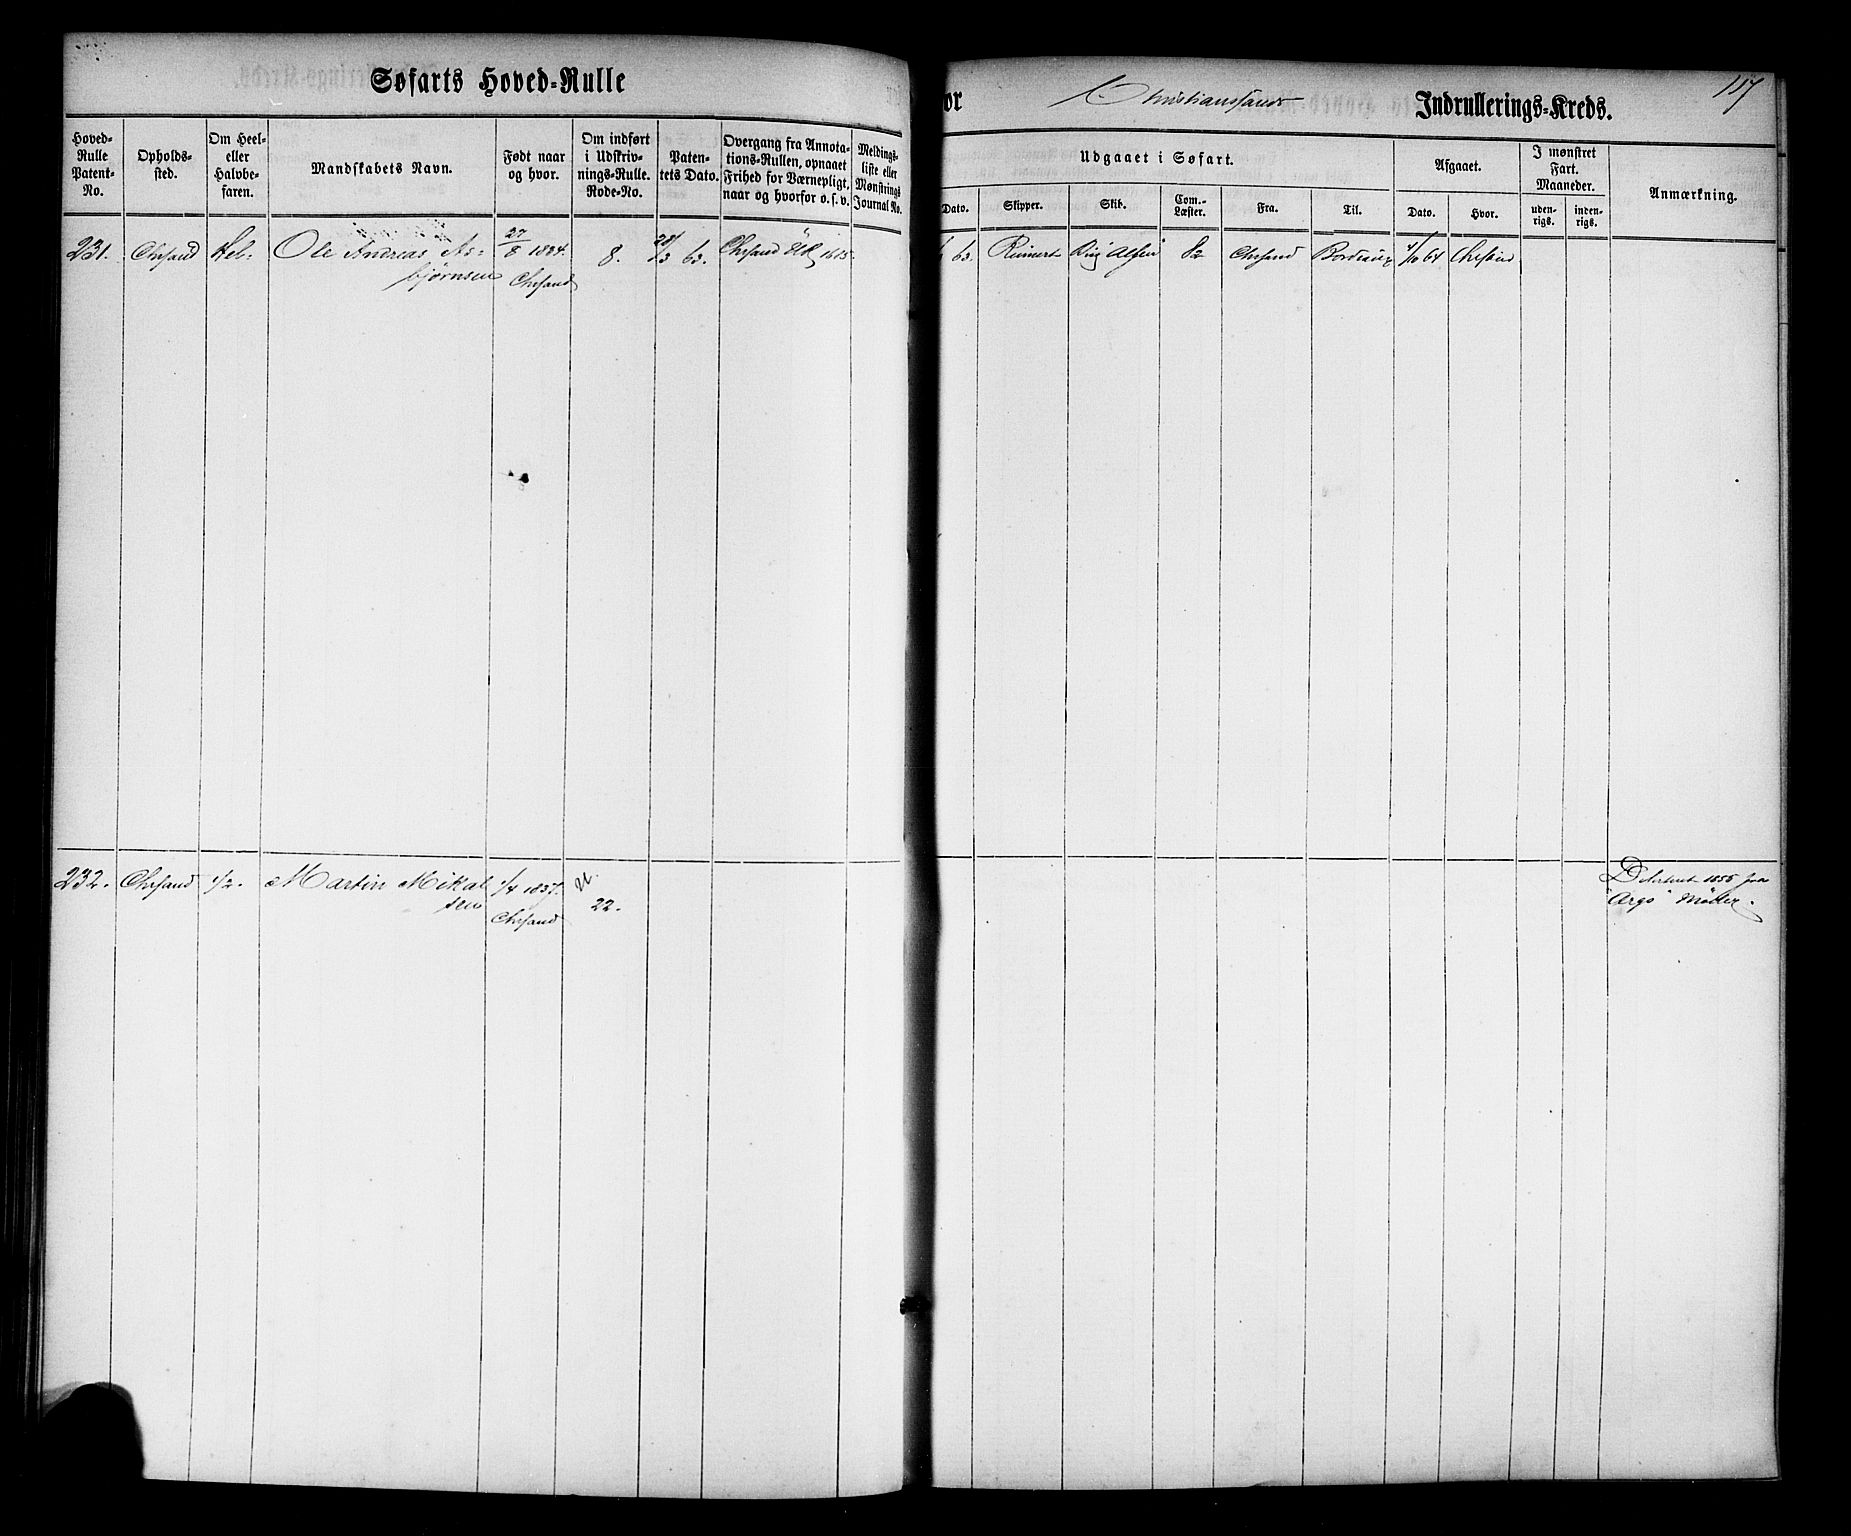 Søfarts Hoved=Rulle
for Christianssands Indrullerings=Kreds.
117
Hoved-
Rulle
Patent-
No.
Opholds-
sted.
Om Heel-
eller
Halvbe-
faren.
Mandskabets Navn.
Født naar
og hvor.
Om indført
i Udskriv-
nings-Rulle.
Rode-No.
Paten-
tets Dato.
Overgang fra Annota-
tions-Rullen, opnaaet
Frihed for Værnepligt,
naar og hvorfor o. s. v.
Meldings-
liste eller
Mønstrings
Journal No.
Udgaaet i Søfart.
Dato.
Skipper.
Skib.
Com.-
Læster.
Fra.
Til.
Afgaaet.
Dato.
Hvor.
I mønstret
Fart.
Maaneder.
uden-
rigs.
inden-
rigs.
Anmærkning.
231. Chrsand Hel- Ole Andreas As-
bjørnsen
27/8 1834.
Chrsand
8.
28/3 63.
Chrsand UR 1615.
63. Reinert Alfen 82 Chrsand Bordeaux 4/10 64
232. Chrsand 1/2. Martin Mikal
sen
1/4 1837.
Chrsand
U.
22.
Deserteret 1855 fra
"Argo" Møller.